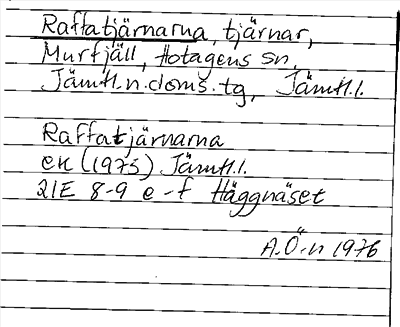 Raffatjärnarna, tjärnar,
Murfjäll, Hotagens sn,
Jämtl.n.doms.tg, Jämtl.l.
Raffatjärnarna
ek (1975) Jämtl.l.
21E 8-9 e-f Häggnäset
A.Ö-n 1976